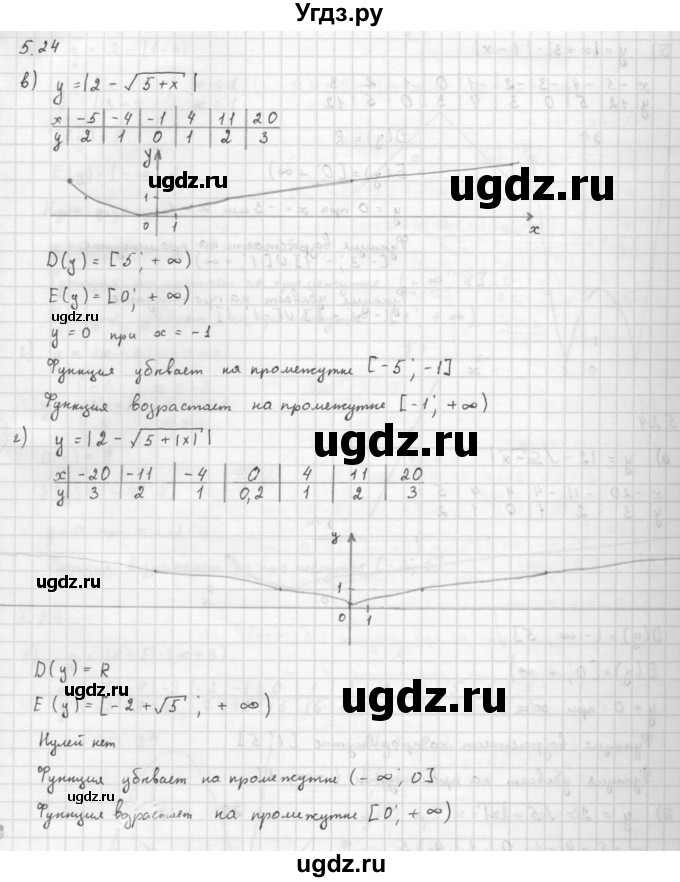 Угдз.ру
5.24
в) y = |2 - √5+x|
x | -5 | -4 | -1 | 4 | 11 | 20
y | 2 | 1 | 0 | 1 | 2 | 3
y
ugdz.ru
ugdz.ru
1
0 1
x
D(y) = [5; +∞)
E(y) = [0; +∞)
ugdz.ru
y = 0 при x = -1
Функция убывает на промежутке [-5; -1]
Функция возрастает на промежутке [-1; +∞)
ugdz.ru
г) y = |2 - √5+|x||
x | -20 | -11 | -4 | 0 | 4 | 11 | 20
y | 3 | 2 | 1 | 0,2 | 1 | 2 | 3
y
ugdz.ru
ugdz.ru
1
0 1
D(y) = R
ugdz.ru
ugdz.ru
E(y) = [-2 + √5; +∞)
Нулей нет
Функция убывает на промежутке (-∞; 0]
ugdz.ru
Функция возрастает на промежутке [0; +∞)
ugdz.ru
ugdz.ru